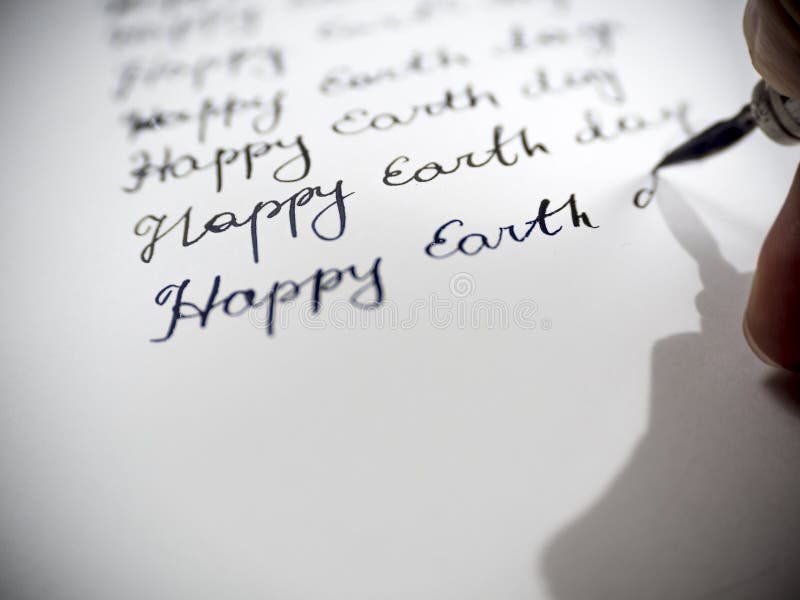 Happy
Happy Earth day
Happy Earth day
Happy Earth day
Happy Earth day
Happy Earth d
dreamstime